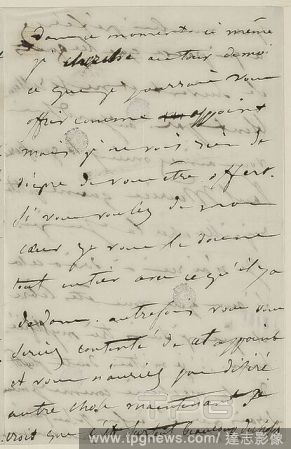 Dans ce moment ci même
je cherche autour de moi
ce que je pourrais vous
offrir comme appoint
mais je ne vois rien de
digne de vous être offert.
Si vous voulez de mon
cœur je vous le donne
tout entier avec ce qu'il y a
dedans. autrefois vous vous
seriez contenté de cet appoint
et vous n'auriez pas désiré
autre chose maintenant je
crois que c'est
TPG
www.tpgnews.com / 達志影像